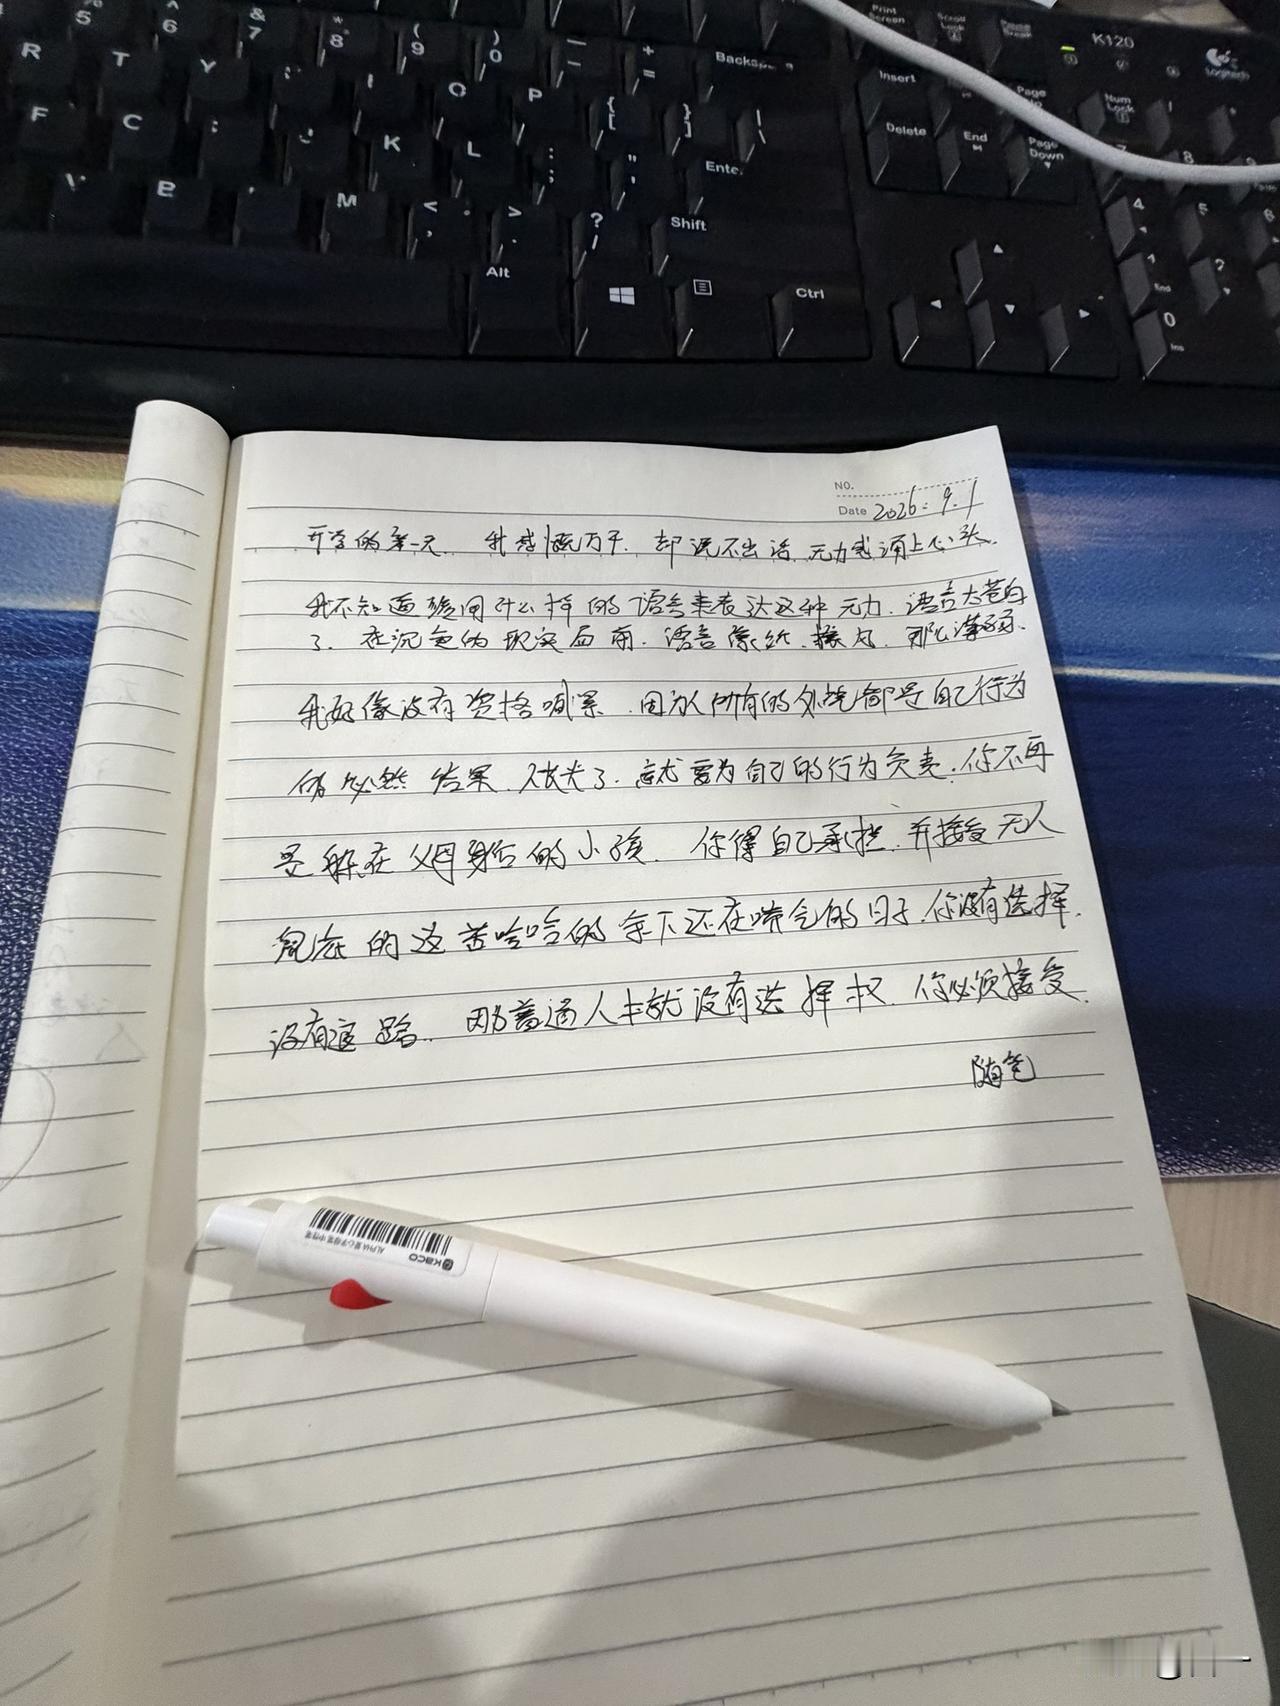 5 6 7 8 9 0 Backspace
R T Y I O P Enter
F K L Shift
M Alt Ctrl
Print Screen Scroll Lock Pause Break
Insert Page Up
Delete End Page Down
K120 Logitech
Num Lock
4 5 6
1 End
0 Ins
NO.
Date 2026.9.1
开学的第一天. 我感慨万千. 却说不出话 无力感涌上心头.
我不知道该用什么样的语言来表达这种无力. 语言太苍白
了. 在沉重的现实面前. 语言像纸. 那么薄弱.
我好像没有资格喊累. 因为所有的处境都是自己行为
的必然结果. 人长大了. 就要为自己的行为负责. 你不再
是躲在父母身后的小孩. 你得自己承担. 并接受无人
兜底的这苦哈哈的余下还在喘气的日子. 你没有选择.
没有退路.. 因为普通人本就没有选择权. 你必须接受.
随笔
kaco
ALPHA